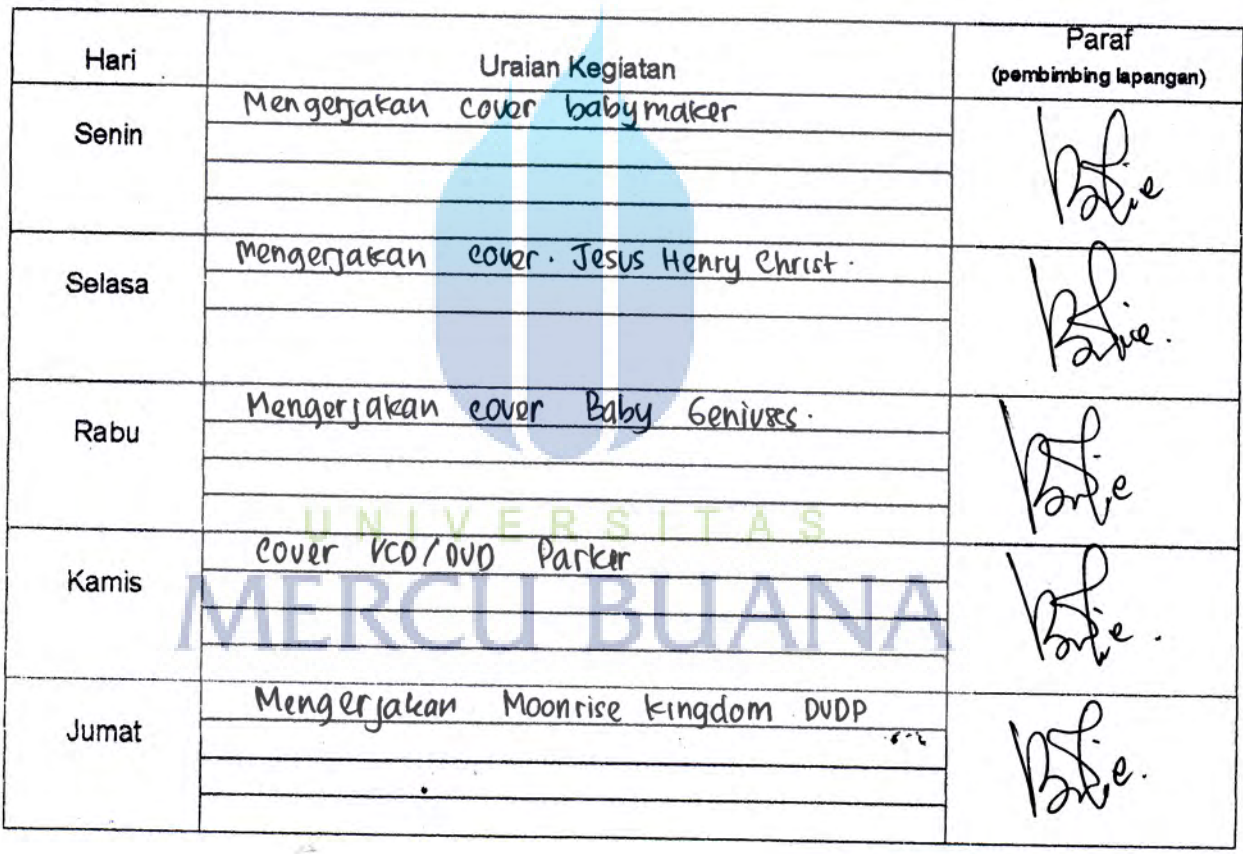 Hari Uraian Kegiatan Paraf
(pembimbing lapangan)
Senin Mengerjakan cover babymaker
Selasa mengerjakan cover. Jesus Henry Christ.
Rabu Mengerjakan cover Baby Geniuses.
UNIVERSITAS
Kamis cover VCD/DVD Parker
MERCU BUANA
Jumat Mengerjakan Moonrise kingdom DVDP